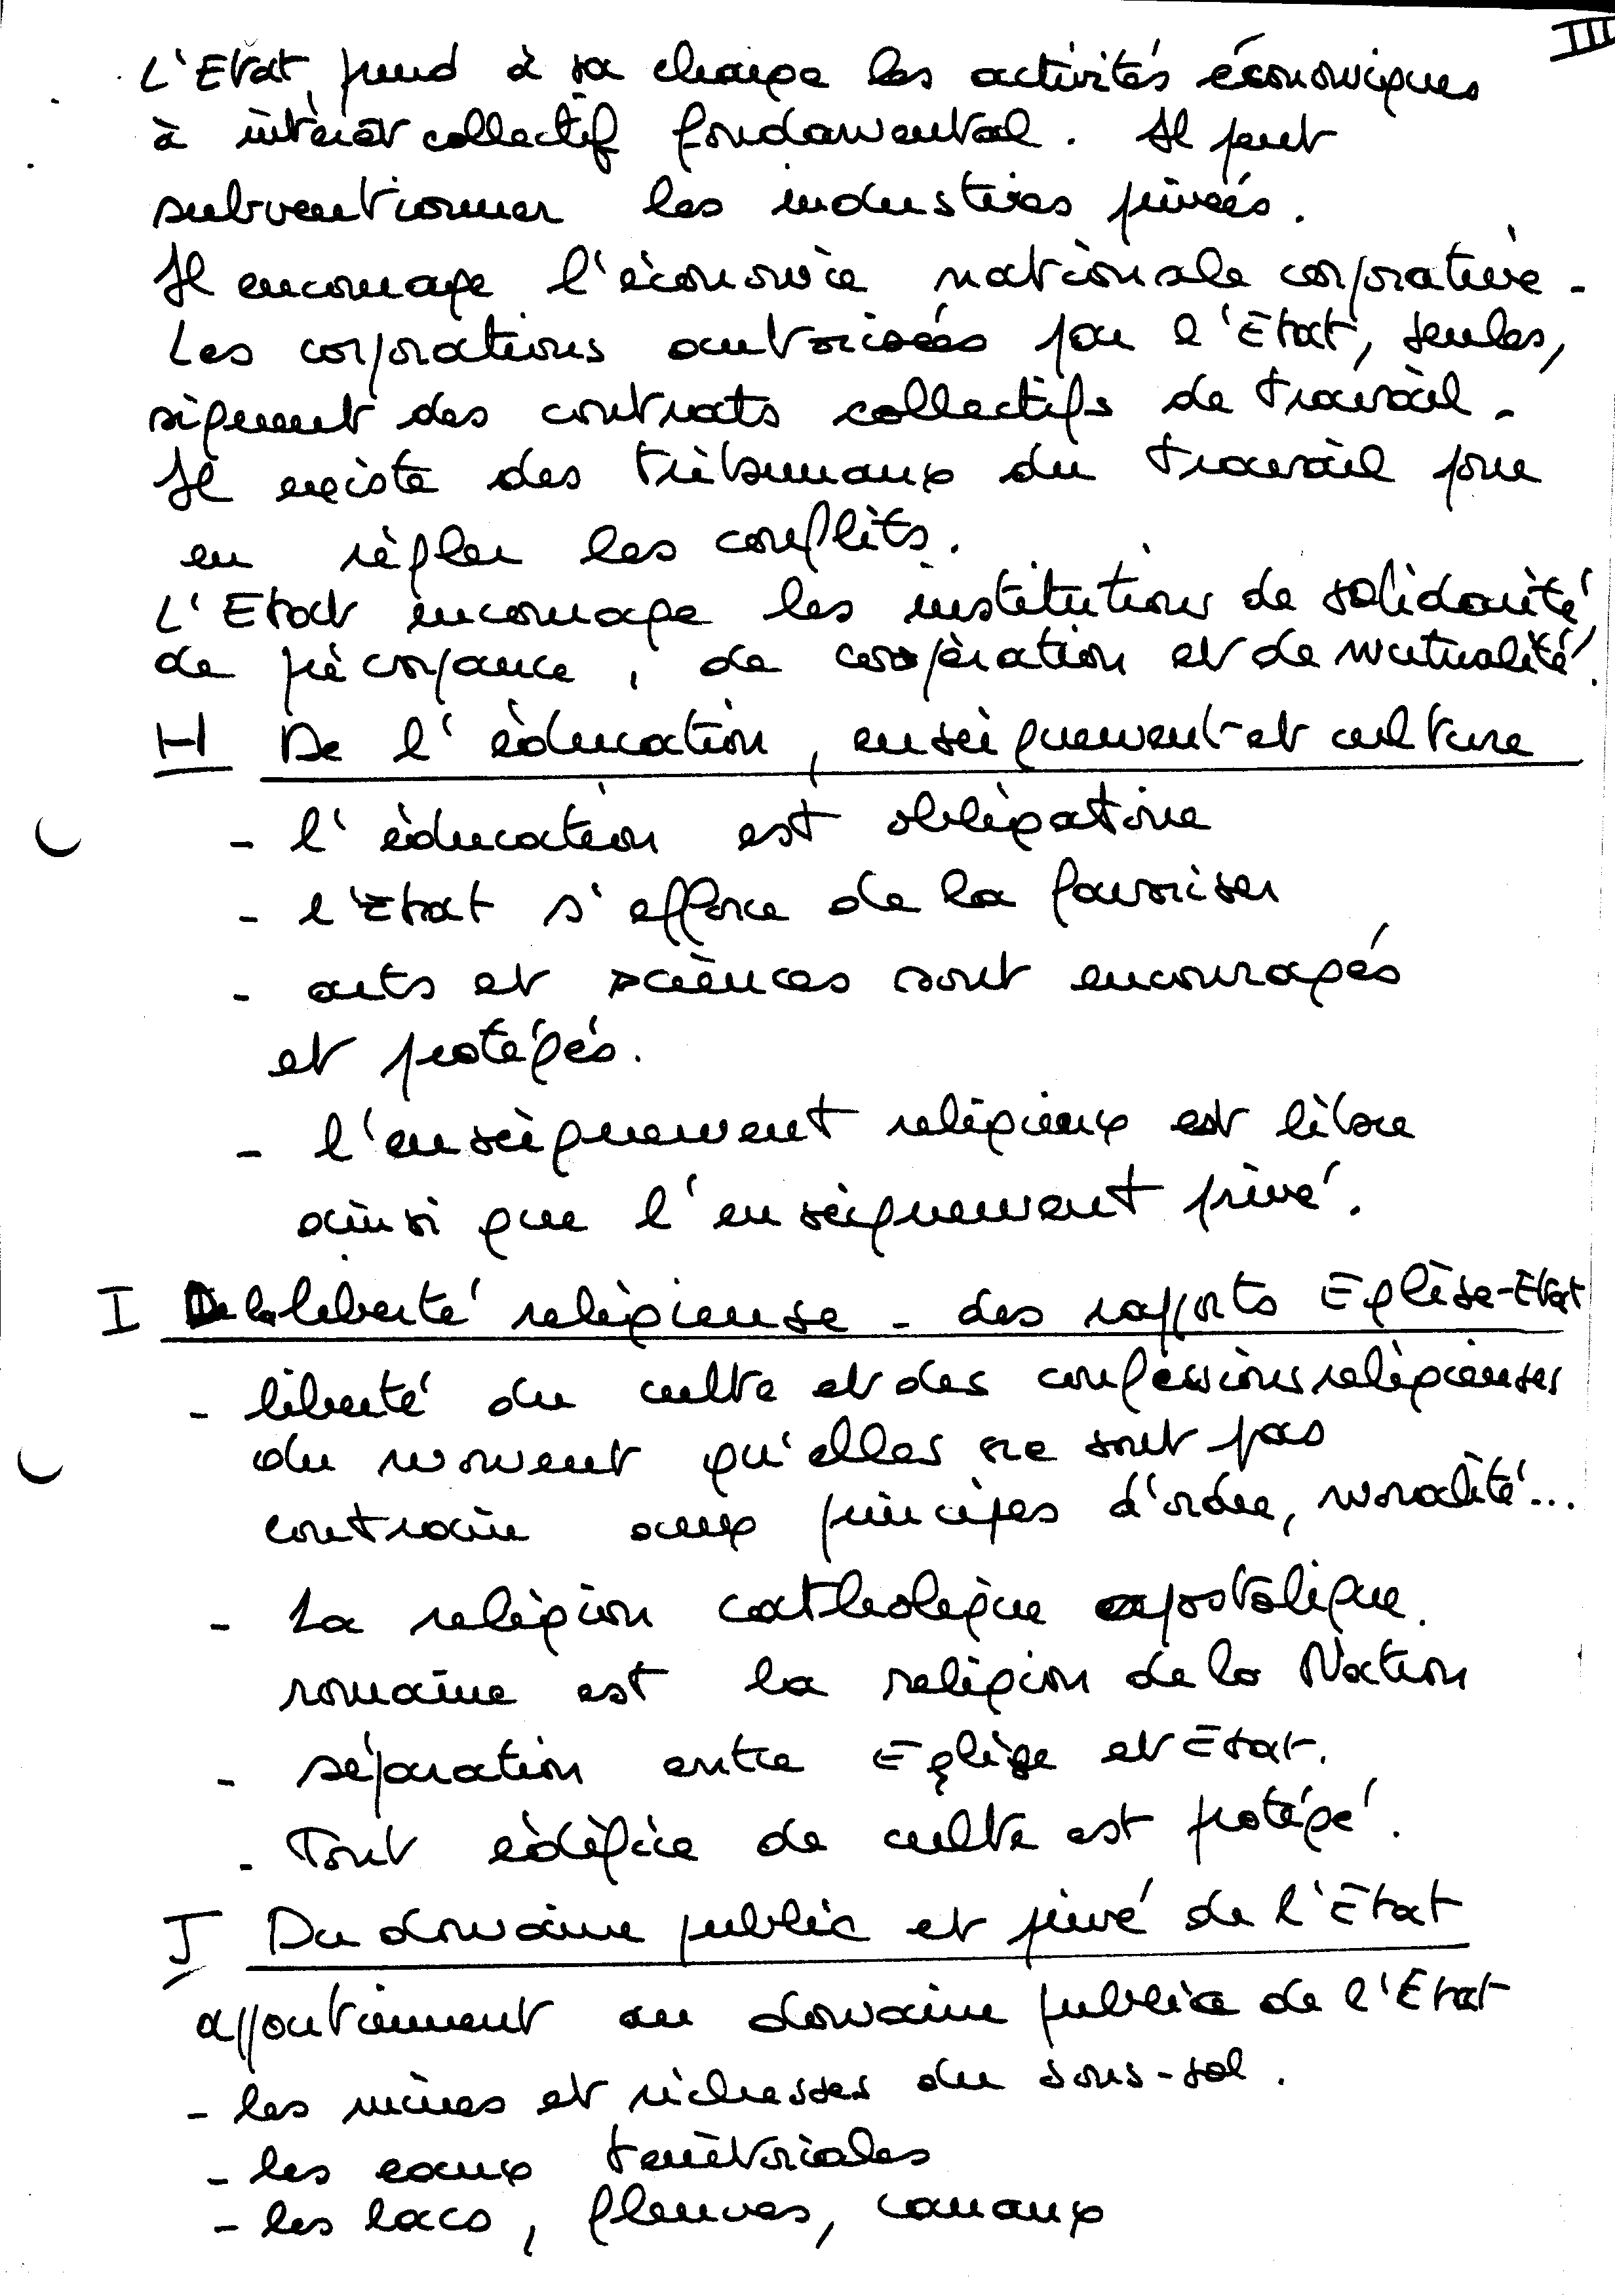 III
L'Etat prend à sa charge les activités économiques
à intérêt collectif fondamental. Il peut
subventionner les industries privées.
Il encourage l'économie nationale corporative.
Les corporations autorisées par l'Etat, seules,
signent des contrats collectifs de travail.
Il existe des tribunaux du travail pour
en régler les conflits.
L'Etat encourage les institutions de solidarité
de prévoyance, de coopération et de mutualité.
H De l'éducation, enseignement et culture
- l'éducation est obligatoire
- l'Etat s'efforce de la favoriser
- arts et sciences sont encouragés
et protégés.
- l'enseignement religieux est libre
ainsi que l'enseignement privé.
I De la liberté religieuse - des rapports Eglise-Etat
- liberté du culte et des confessions religieuses
du moment qu'elles ne sont pas
contraire aux principes d'ordre, moralité...
- La religion catholique apostolique.
romaine est la religion de la Nation
- séparation entre Eglise et Etat.
- Tout édifice de culte est protégé.
J Du domaine public et privé de l'Etat
appartiennent au domaine public de l'Etat
- les mines et richesses du sous-sol.
- les eaux territoriales
- les lacs, fleuves, canaux